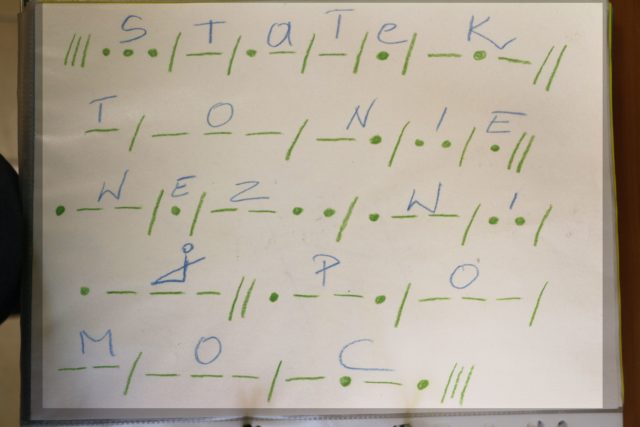 S T a T e K
//// • • • / — / • — / — / • / — • — //
T O N I E
— / — — — / — • / • • / • //
W E Z W I
• — — / • / — — • • / • — — / • • /
J P O
• — — — // • — — • / — — — /
M O C
— — / — — — / — • — • ///